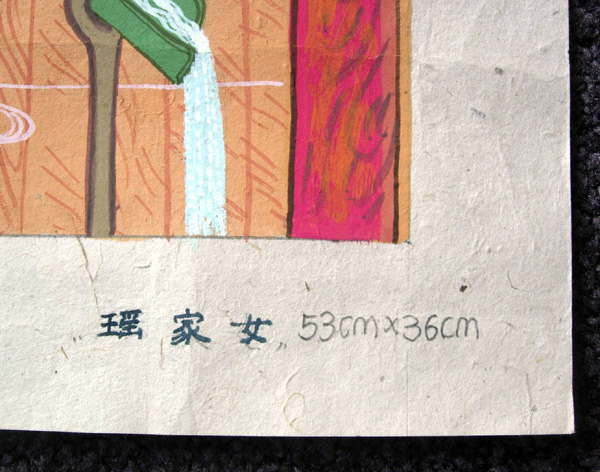 "瑶家女" 53cm×36cm